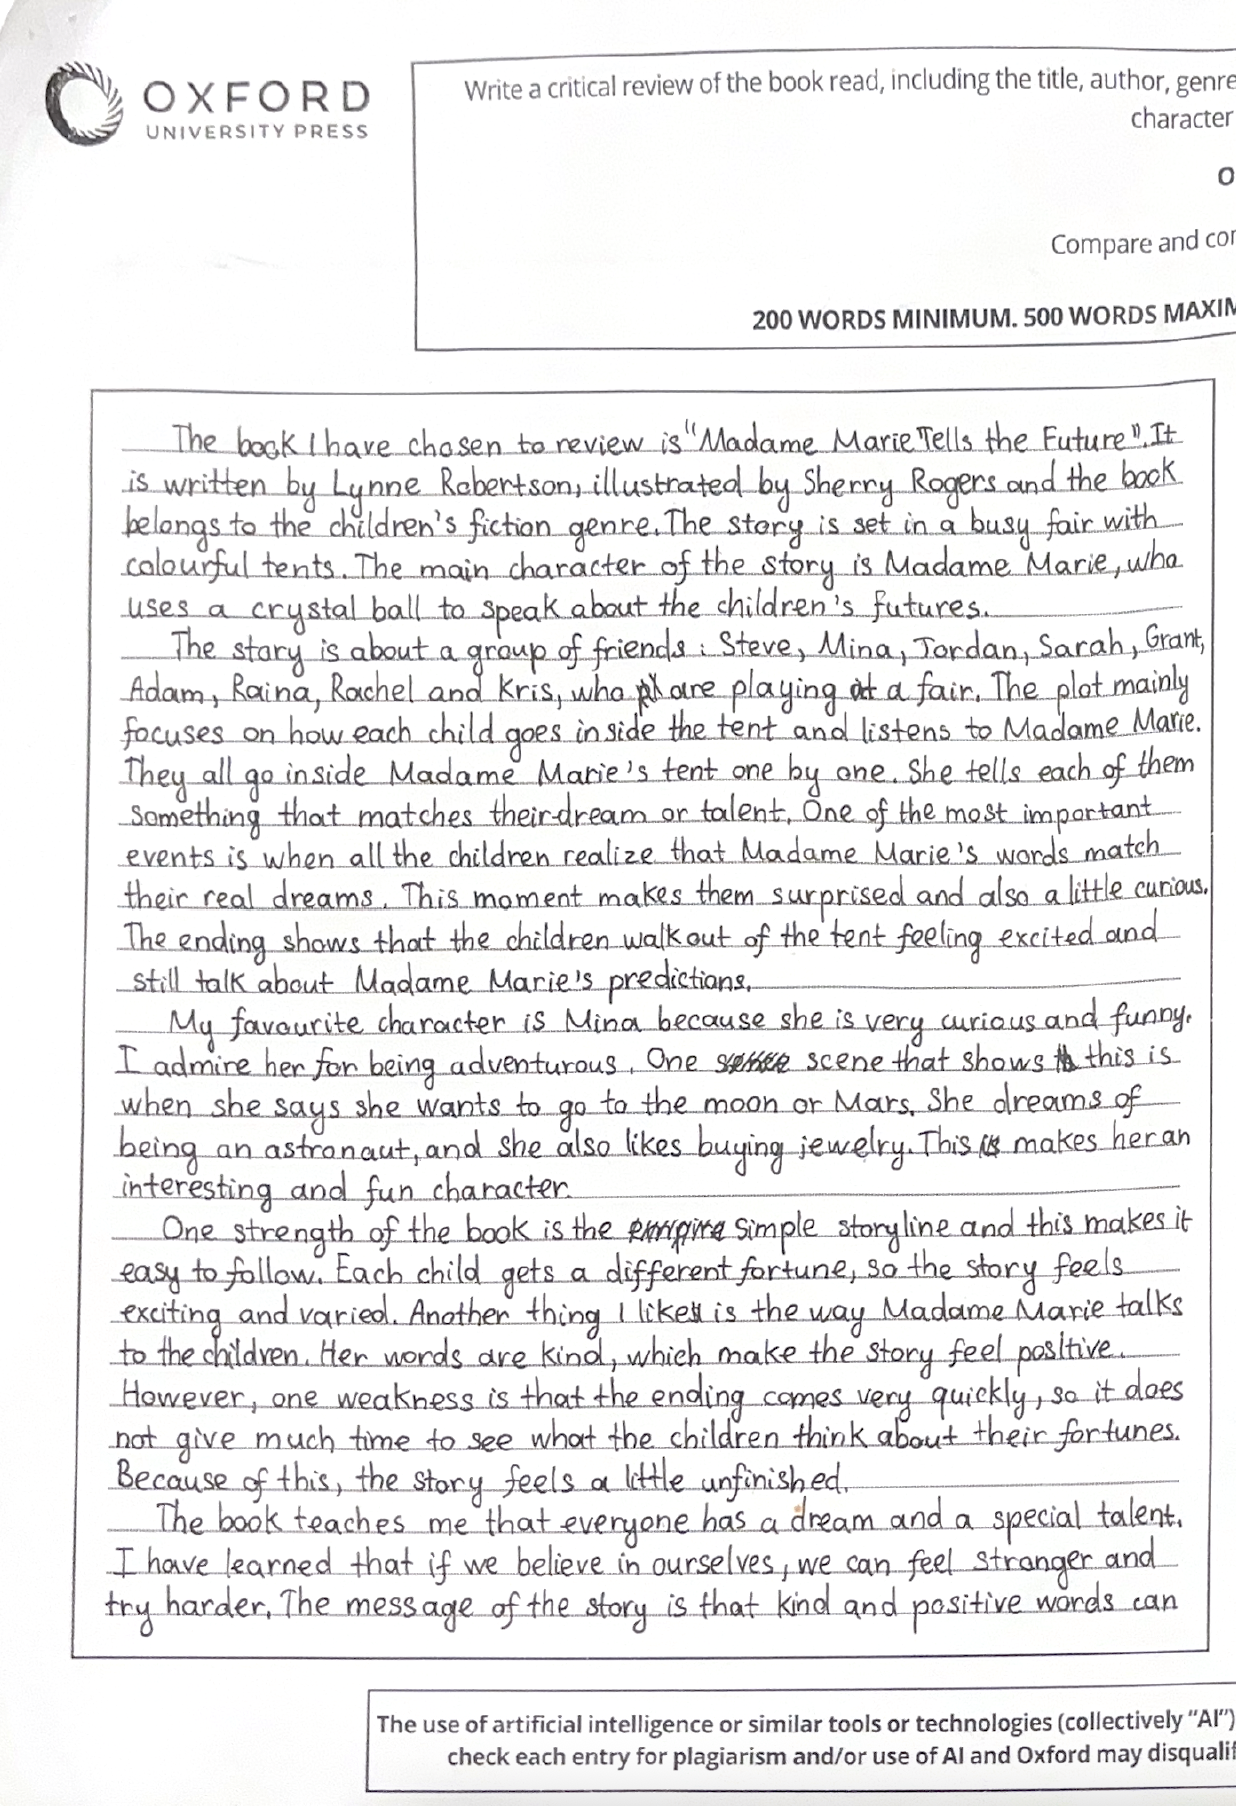 OXFORD
UNIVERSITY PRESS
Write a critical review of the book read, including the title, author, genre
character
O
Compare and cor
200 WORDS MINIMUM. 500 WORDS MAXIM
The book I have chosen to review is "Madame Marie Tells the Future". It
is written by Lynne Robertson, illustrated by Sherry Rogers and the book
belongs to the children's fiction genre. The story is set in a busy fair with
colourful tents. The main character of the story is Madame Marie, who
uses a crystal ball to speak about the children's futures.
The story is about a group of friends : Steve, Mina, Jordan, Sarah, Grant,
Adam, Raina, Rachel and Kris, who are playing at a fair. The plot mainly
focuses on how each child goes inside the tent and listens to Madame Marie.
They all go inside Madame Marie's tent one by one. She tells each of them
something that matches their dream or talent. One of the most important
events is when all the children realize that Madame Marie's words match
their real dreams. This moment makes them surprised and also a little curious.
The ending shows that the children walk out of the tent feeling excited and
still talk about Madame Marie's predictions.
My favourite character is Mina because she is very curious and funny.
I admire her for being adventurous. One scene that shows this is
when she says she wants to go to the moon or Mars. She dreams of
being an astronaut, and she also likes buying jewelry. This makes her an
interesting and fun character.
One strength of the book is the simple storyline and this makes it
easy to follow. Each child gets a different fortune, so the story feels
exciting and varied. Another thing I like is the way Madame Marie talks
to the children. Her words are kind, which make the story feel positive.
However, one weakness is that the ending comes very quickly, so it does
not give much time to see what the children think about their fortunes.
Because of this, the story feels a little unfinished.
The book teaches me that everyone has a dream and a special talent.
I have learned that if we believe in ourselves, we can feel stronger and
try harder. The message of the story is that kind and positive words can
The use of artificial intelligence or similar tools or technologies (collectively "AI")
check each entry for plagiarism and/or use of AI and Oxford may disqualif